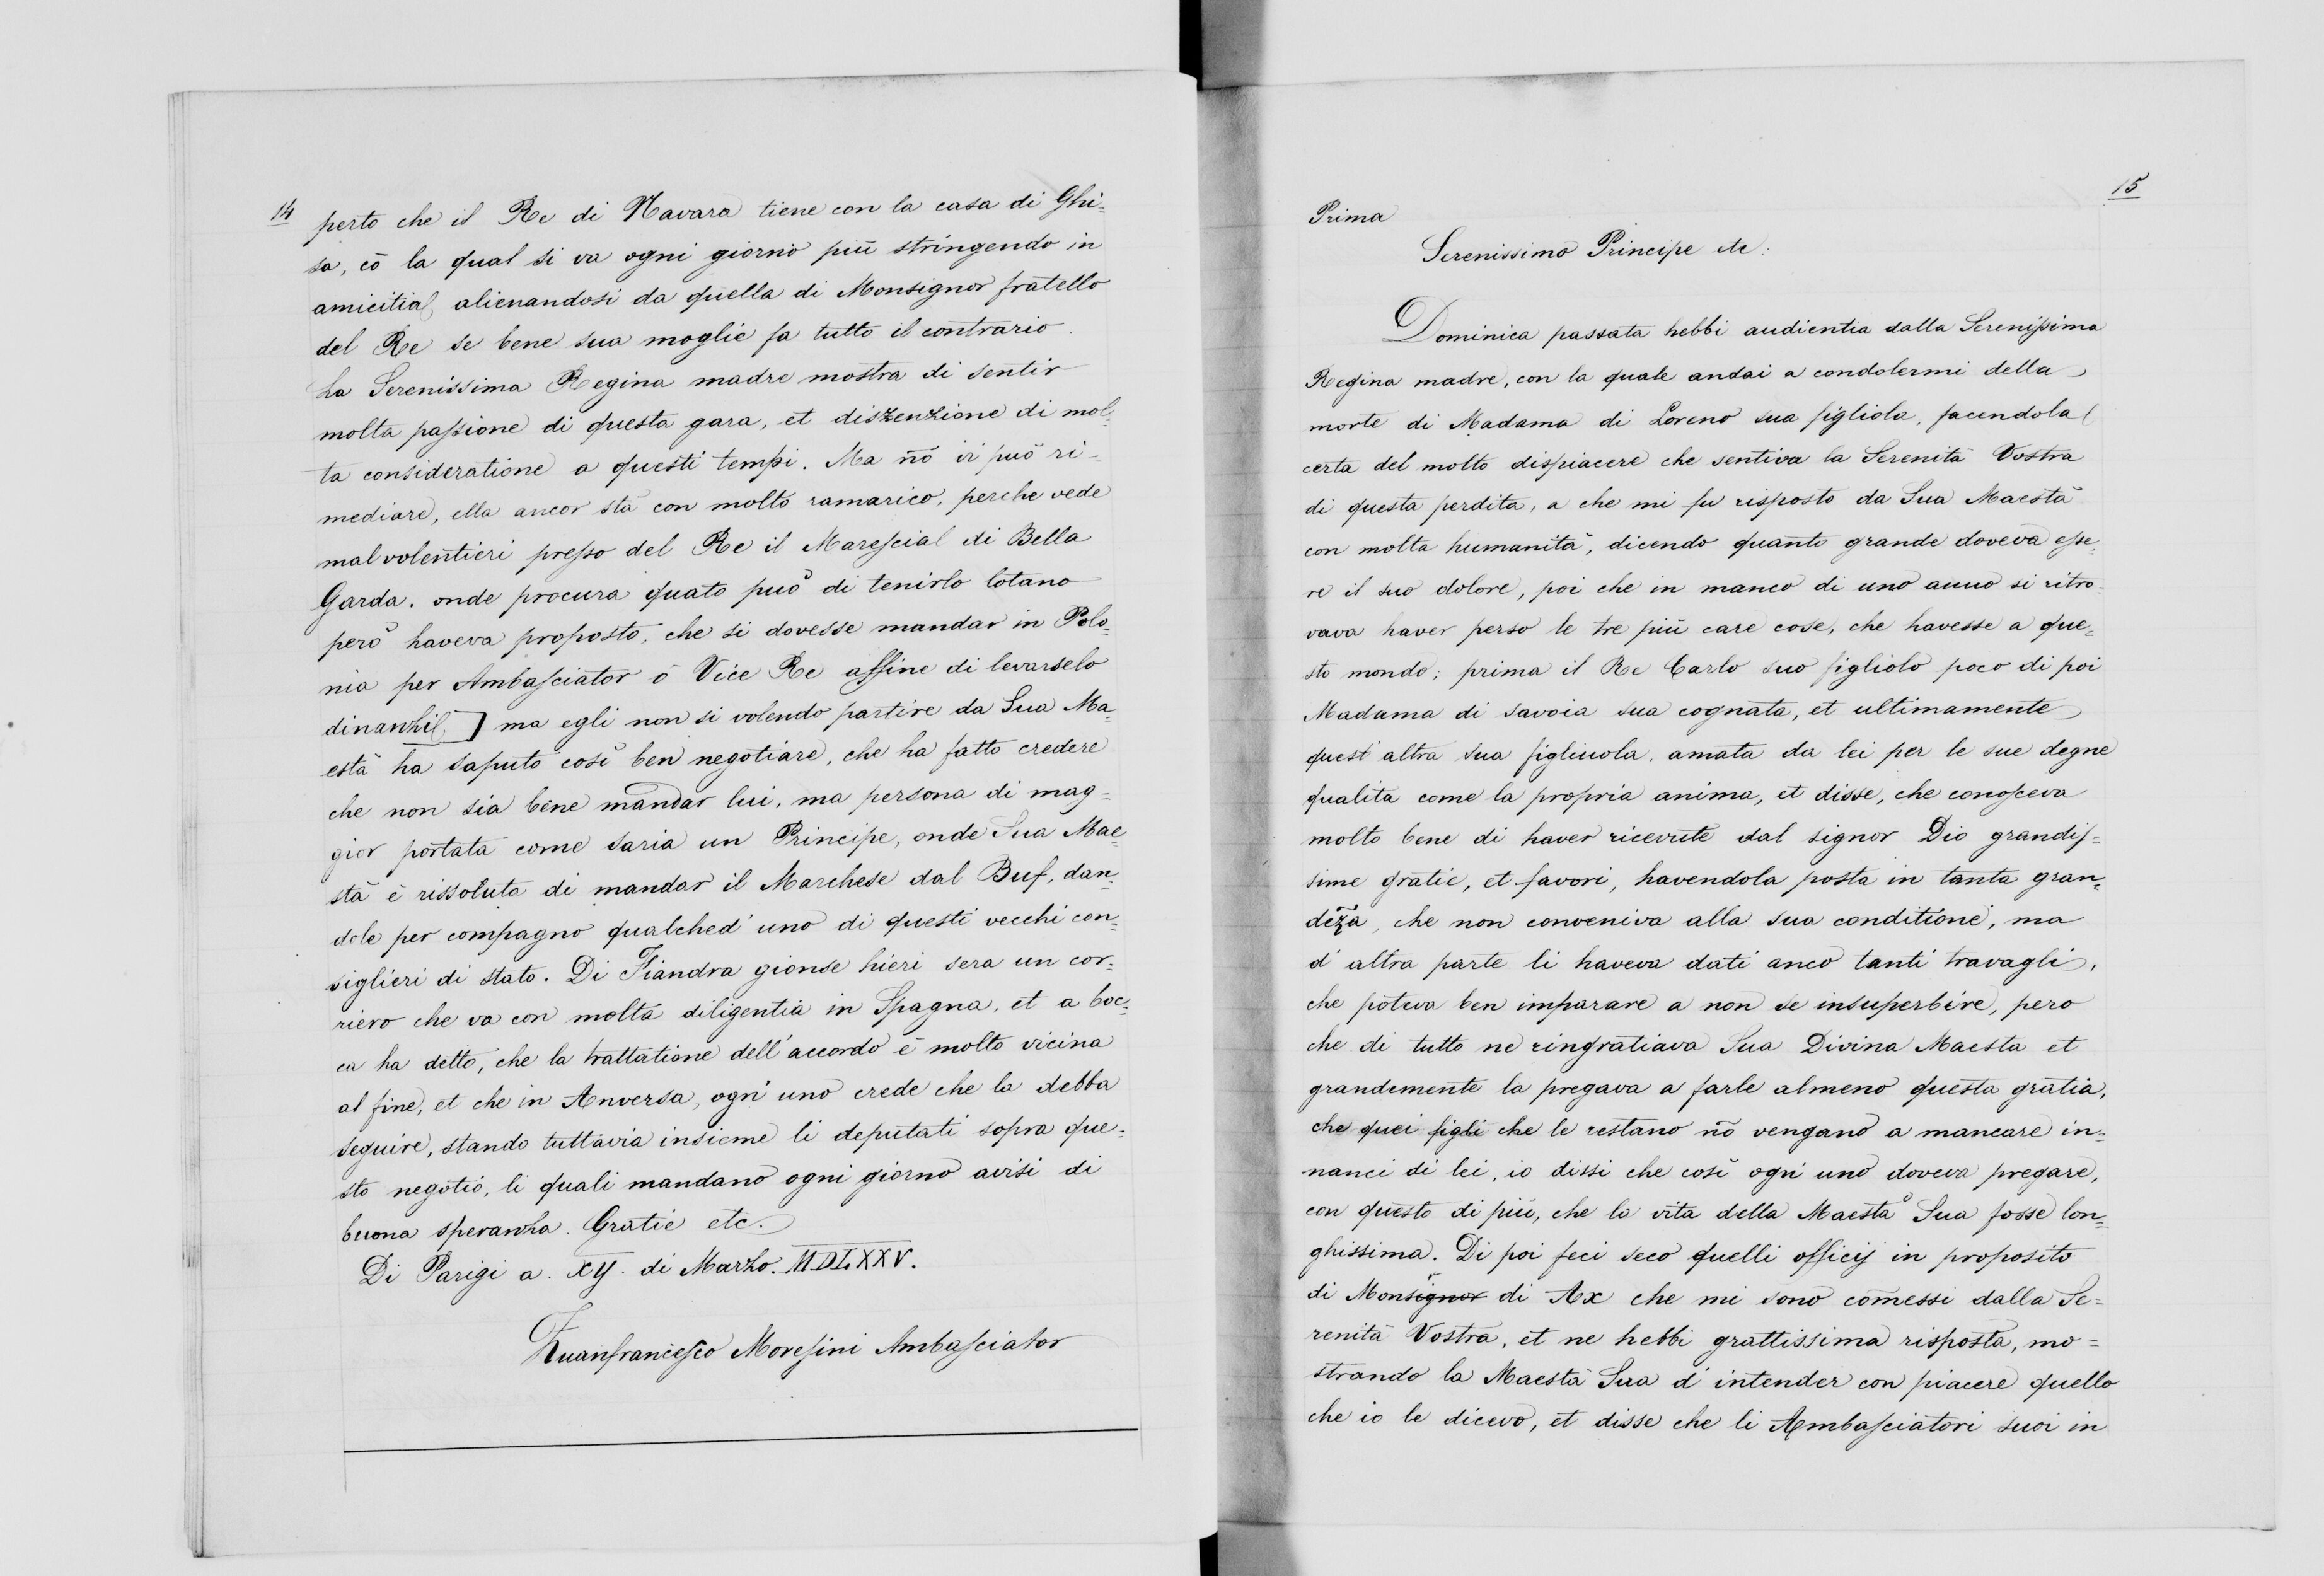 14
perto che il Re di Navara tiene con la casa di Ghi=
sa, cō la qual si va ogni giorno più stringendo in
amicitia, alienandosi da quella di Monsignor fratello
del Re se bene sua moglie fa tutto il contrario.
La Serenissima Regina madre mostra di sentir
molta passione di questa gara, et diszenzione di mol=
ta consideratione a questi tempi. Ma nō vi può ri=
mediare, ella ancor stà con molto ramarico, perche vede
mal volentieri presso del Re il Marescial di Bella
Garda. onde procura quato può di tenirlo lotano
però haveva proposto, che si dovesse mandar in Polo=
nia per Ambasciator ò Vice Re affine di levarselo
dinanzi ] ma egli non si volendo partire da Sua Ma=
està ha saputo così ben negotiare, che ha fatto credere
che non sia bene mandar lui, ma persona di mag=
gior portata come saria un Principe, onde Sua Mae=
stà è rissoluta di mandar il Marchese dal Buf, dan=
dole per compagno qualched' uno di questi vecchi con=
siglieri di stato. Di Fiandra gionse hieri sera un cor=
riero che va con molta diligentia in Spagna, et a boc=
ca ha detto, che la trattatione dell' accordo è molto vicina
al fine, et che in Anversa, ogn' uno crede che la debba
seguire, stando tuttavia insieme li deputati sopra que=
sto negotio, li quali mandano ogni giorno avisi di
buona speranza. Gratie etc.
Di Parigi a. XIJ. di Marzo. MDLXXV.
Zuanfrancesco Moresini Ambasciator
15
Prima
Serenissimo Principe etc:
Dominica passata hebbi audientia dalla Serenissima
Regina madre, con la quale andai a condolermi della
morte di Madama di Loreno sua figliola, facendola
certa del molto dispiacere che sentiva la Serenità Vostra
di questa perdita, a che mi fu risposto da Sua Maestà
con molta humanità, dicendo quanto grande doveva esse=
re il suo dolore, poi che in manco di uno anno si ritro=
vava haver perso le tre più care cose, che havesse a que=
sto mondo; prima il Re Carlo suo figliolo poco di poi
Madama di Savoia sua cognata, et ultimamente
quest' altra sua figliuola, amata da lei per le sue degne
qualita come la propria anima, et disse, che conosceva
molto bene di haver ricevute dal signor Dio grandis=
sime gratie, et favori, havendola posta in tanta gran=
deza, che non conveniva alla sua conditione, ma
d' altra parte li haveva dati anco tanti travagli,
che poteva ben imparare a non se insuperbire, pero
che di tutto ne ringratiava Sua Divina Maesta et
grandemente la pregava a farle almeno questa gratia,
che quei figli che le restano nō vengano a mancare in=
nanci di lei, io dissi che così ogn' uno doveva pregare,
con questo di più, che la vita della Maestà Sua fosse lon=
ghissima. Di poi feci seco quelli officij in proposito
di Monsignor di Ax che mi sono comessi dalla Se=
renità Vostra, et ne hebbi grattissima risposta, mo=
strando la Maestà Sua d' intender con piacere quello
che io le dicevo, et disse che li Ambasciatori suoi in